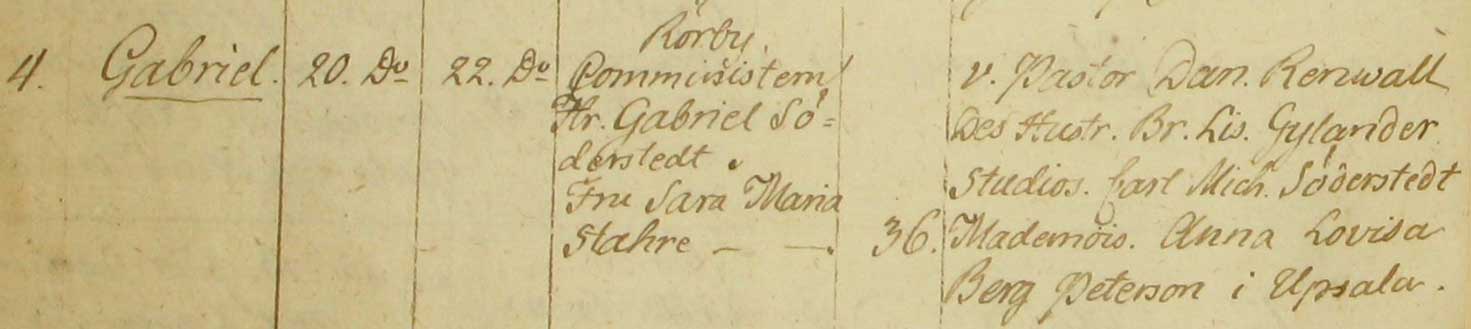 Rörby.
4. Gabriel. 20. Do 22. Do Comministern v. Pastor Dan. Renwall
Hr. Gabriel Sö= Des Hustr. Br. Lis. Gylander
derstedt Studios. Carl Mich. Söderstedt
Fru Sara Maria
Stahre — —. 36. Mademois. Anna Lovisa
Berg Peterson i Upsala.